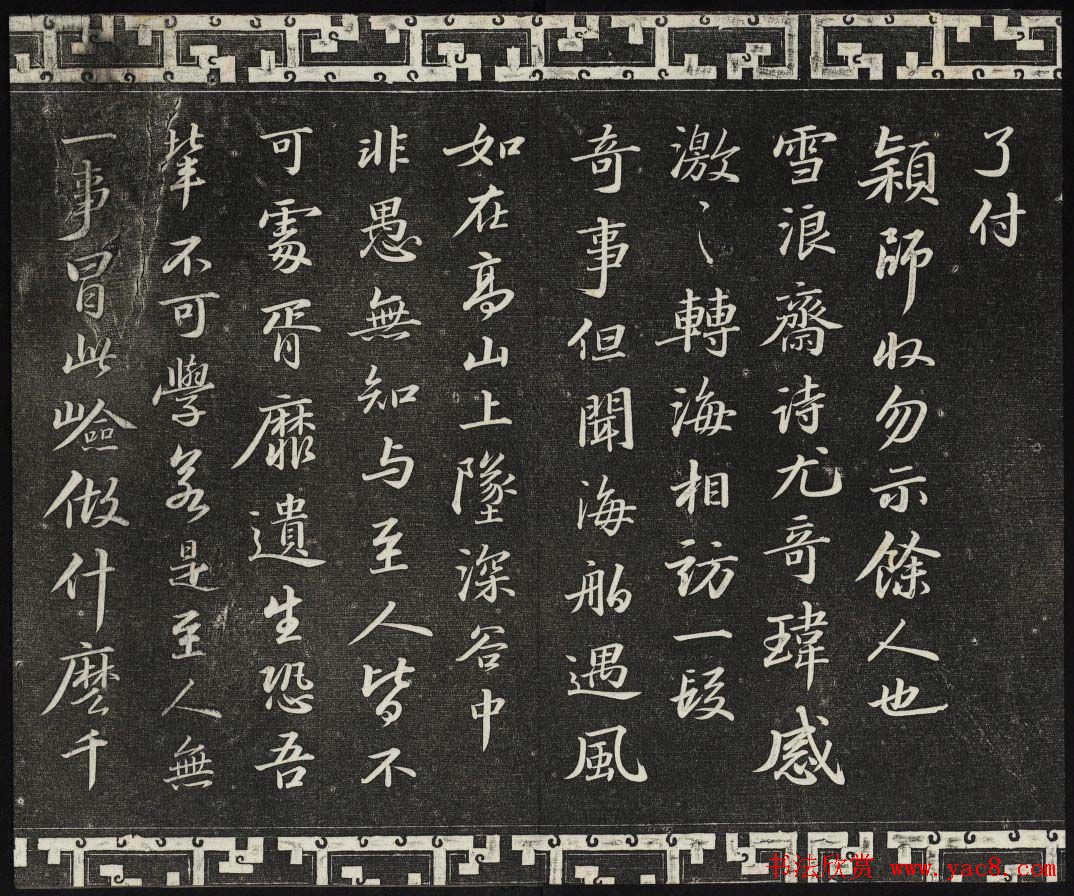 了付
穎師収勿示餘人也
雪浪齋诗尤奇瑋感
激〻轉海相訪一段
奇事但聞海舶遇風
如在高山上墜深谷中
非愚無知与至人皆不
可處胥靡遺生恐吾
輩不可學若是至人無
一事冒此嶮做什麼千
书法欣赏 www.yac8.com